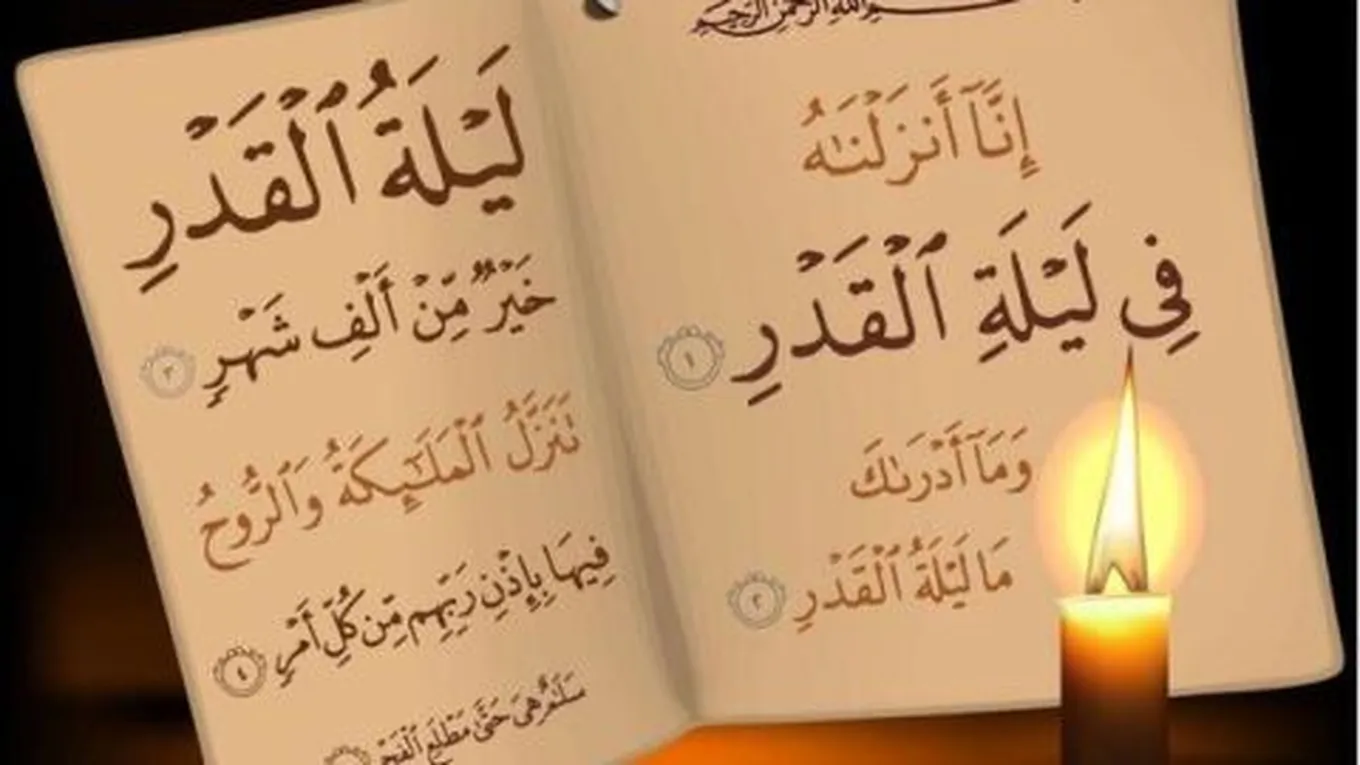 بسم الله الرحمن الرحيم
إِنَّآ أَنزَلْنَٰهُ
فِى لَيْلَةِ ٱلْقَدْرِ ١
وَمَآ أَدْرَىٰكَ
مَا لَيْلَةُ ٱلْقَدْرِ ٢
لَيْلَةُ ٱلْقَدْرِ
خَيْرٌ مِّنْ أَلْفِ شَهْرٍ ٣
تَنَزَّلُ ٱلْمَلَٰٓئِكَةُ وَٱلرُّوحُ
فِيهَا بِإِذْنِ رَبِّهِم مِّن كُلِّ أَمْرٍ ٤
سَلَٰمٌ هِىَ حَتَّىٰ مَطْلَعِ ٱلْفَجْرِ